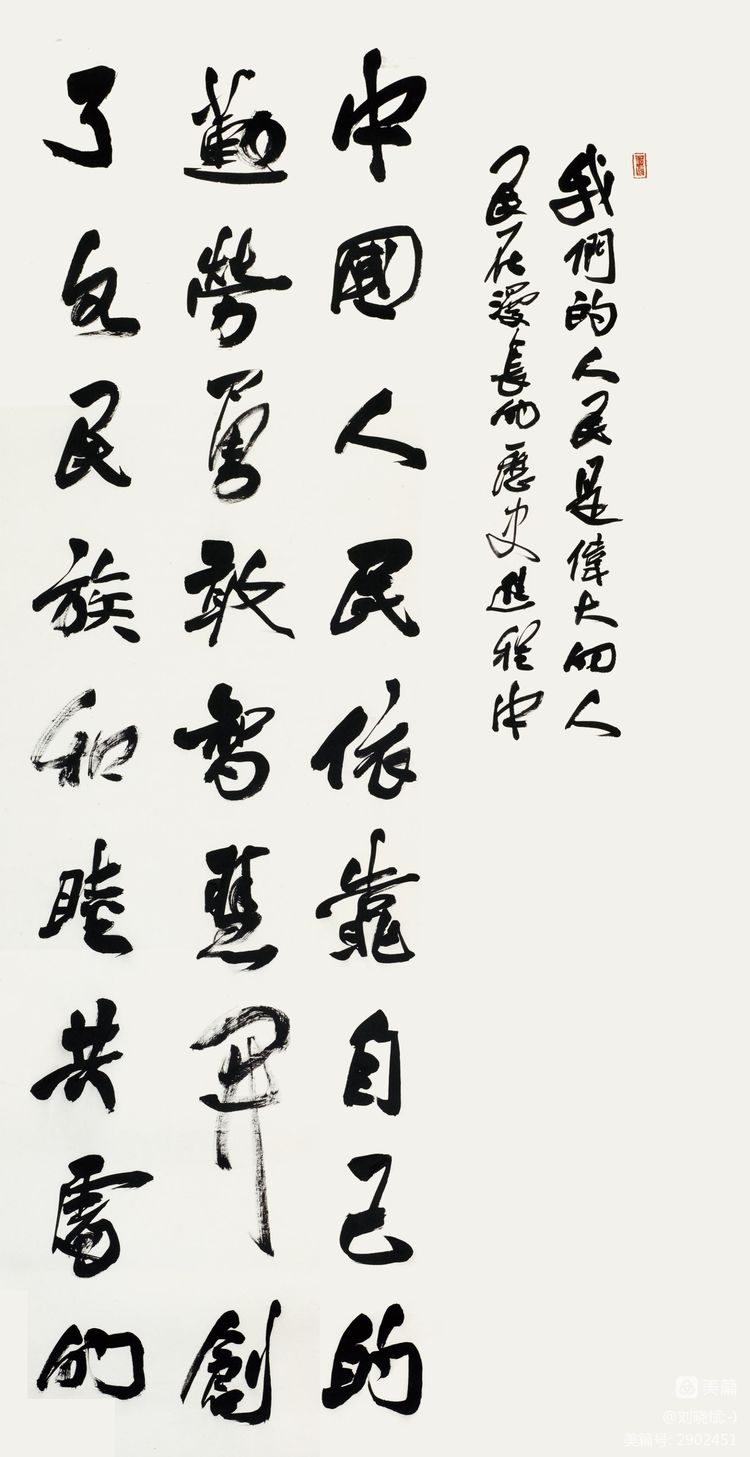 我們的人民是偉大的人
民在漫長的歷史進程中
中國人民依靠自己的
勤勞勇敢智慧開創
了各民族和睦共處的
美篇
@刘晓斌:-)
美篇号: 2902451